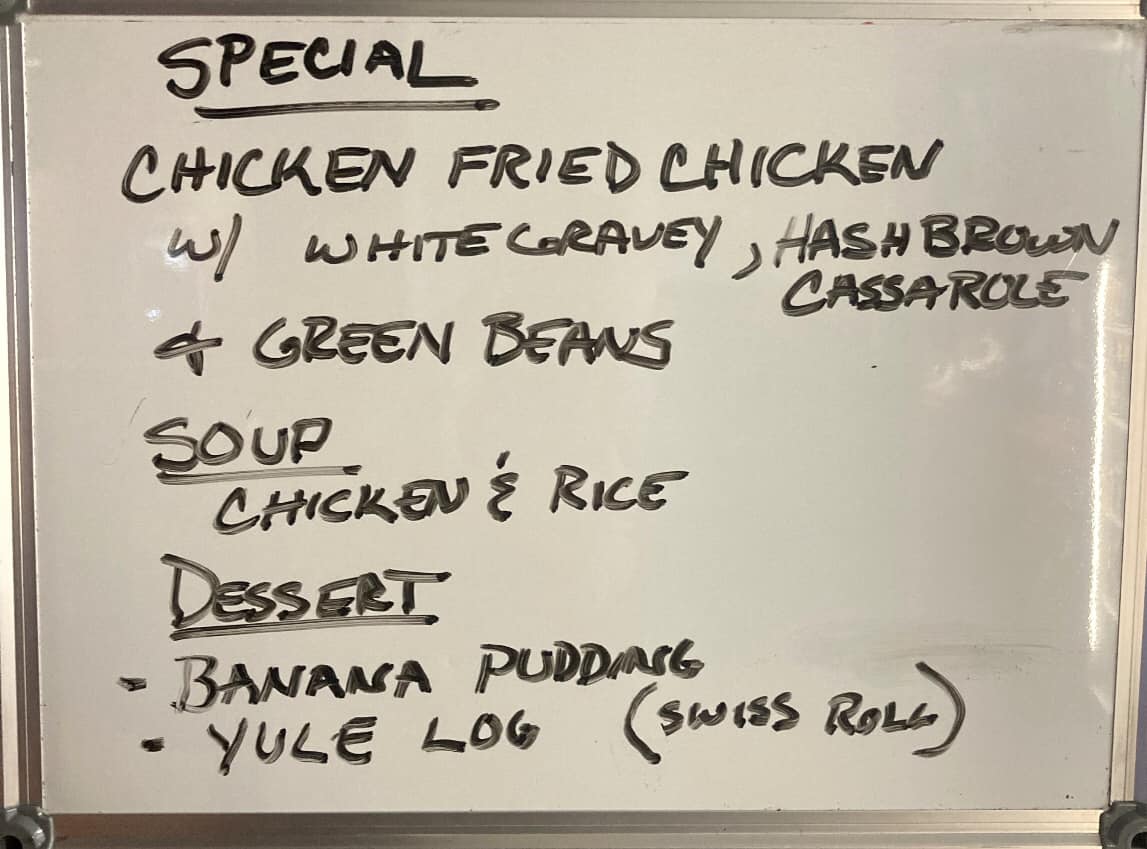 SPECIAL
CHICKEN FRIED CHICKEN
W/ WHITE GRAVEY, HASH BROWN
CASSAROLE
& GREEN BEANS
SOUP
CHICKEN & RICE
DESSERT
- BANANA PUDDING
- YULE LOG (SWISS ROLL)